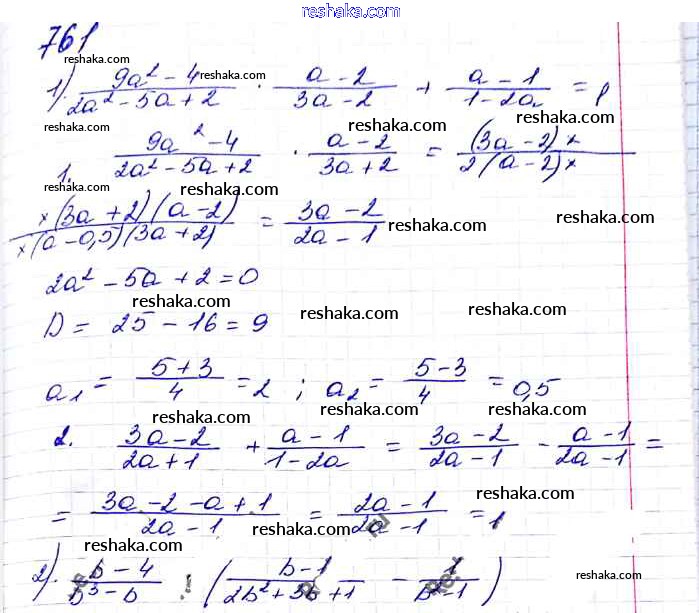 reshaka.com
761
1) (9a² - 4)/(2a² - 5a + 2) · (a - 2)/(3a - 2) + (a - 1)/(1 - 2a) =
reshaka.com
reshaka.com reshaka.com
reshaka.com
1. (9a² - 4)/(2a² - 5a + 2) · (a - 2)/(3a + 2) = ((3a - 2)×)/(2(a - 2)×)
reshaka.com reshaka.com
reshaka.com
(×(3a + 2)(a - 2))/(×(a - 0,5)(3a + 2)) = (3a - 2)/(2a - 1)
reshaka.com reshaka.com
2a² - 5a + 2 = 0
reshaka.com reshaka.com
D = 25 - 16 = 9
reshaka.com
a₁ = (5 + 3)/4 = 2 ; a₂ = (5 - 3)/4 = 0,5
reshaka.com reshaka.com
reshaka.com
2. (3a - 2)/(2a + 1) + (a - 1)/(1 - 2a) = (3a - 2)/(2a - 1) - (a - 1)/(2a - 1) =
reshaka.com reshaka.com
= (3a - 2 - a + 1)/(2a - 1) = (2a - 1)/(2a - 1) = 1
reshaka.com reshaka.com
reshaka.com
2) (b - 4)/(b³ - b) : ((b - 1)/(2b² + 3b + 1) - 1/(b² - 1))
reshaka.com